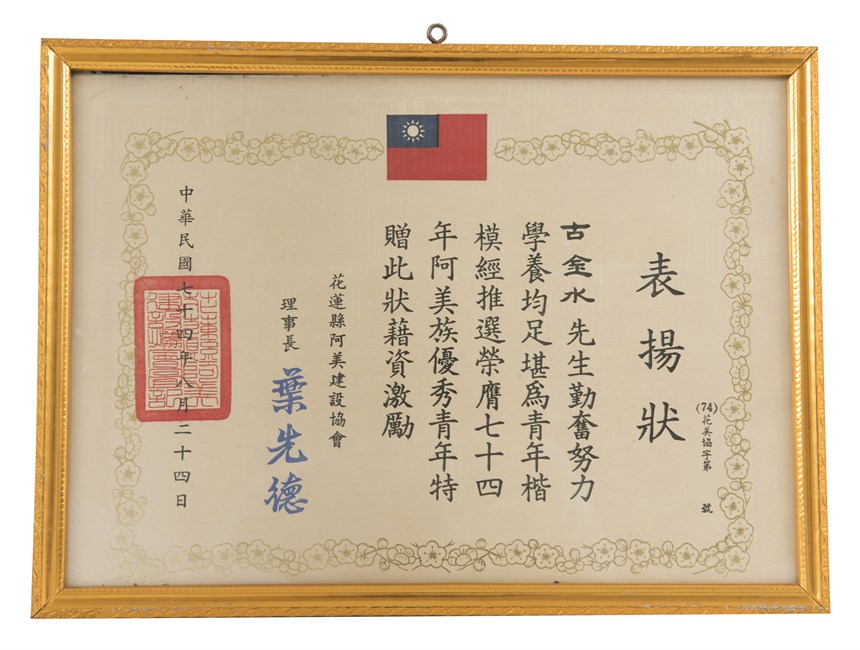 表揚狀
(74)花美協字第 號
古金水先生勤奮努力
學養均足堪爲青年楷
模經推選榮膺七十四
年阿美族優秀青年特
贈此狀藉資激勵
花蓮縣阿美建設協會
理事長 葉先德
中華民國七十四年八月二十四日